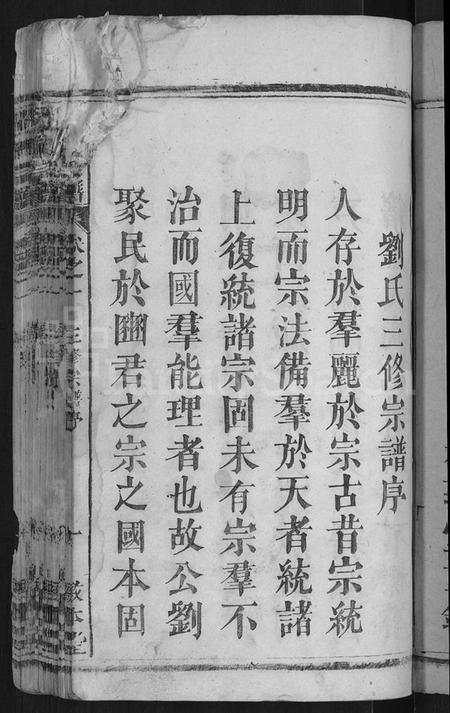 劉氏三修宗譜序
人存於羣麗於宗古昔宗統
明而宗法備羣於天者統諸
上復統諸宗固未有宗羣不
治而國羣能理者也故公劉
聚民於豳君之宗之國本固
三修宗譜序
一